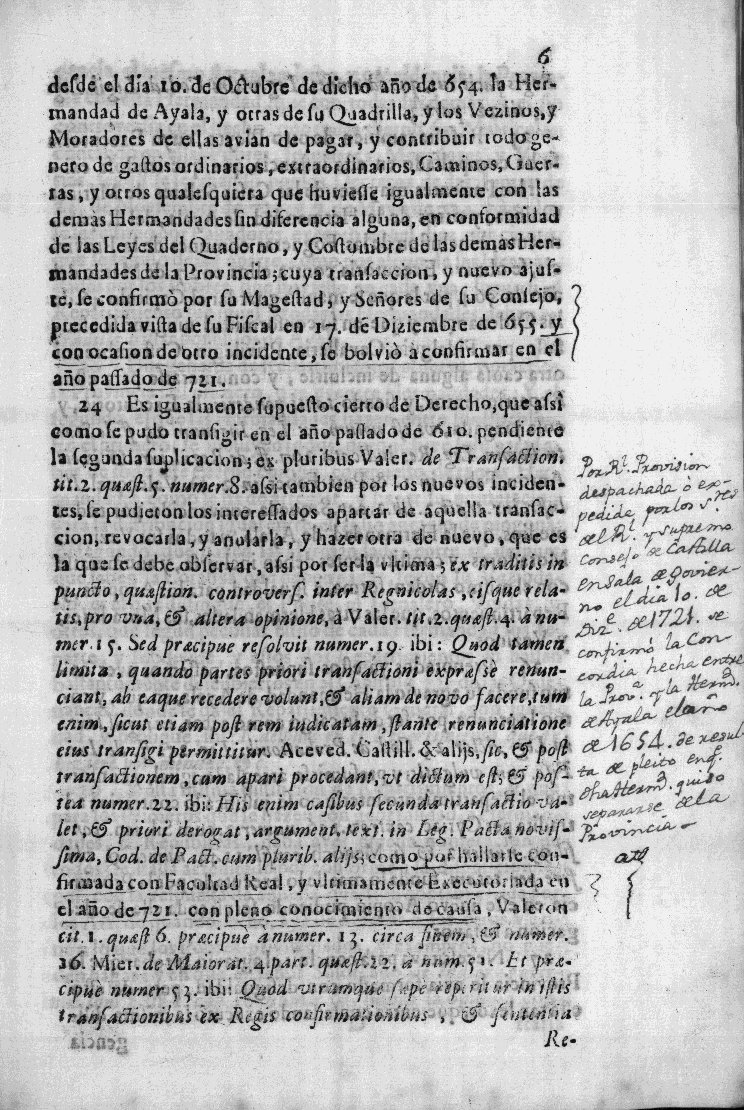 6
desde el día 10. de Octubre de dicho año de 654. la Her-
mandad de Ayala, y otras de su Quadrilla, y los Vezinos, y
Moradores de ellas avian de pagar, y contribuir todo ge-
nero de gastos ordinarios, extraordinarios, Caminos, Guer-
ras, y otros qualesquiera que huviesse igualmente con las
demàs Hermandades sin diferencia alguna, en conformidad
de las Leyes del Quaderno, y Costumbre de las demàs Her-
mandades de la Provincia; cuya transaccion, y nuevo ajus-
te, se confirmò por su Magestad, y Señores de su Consejo,
precedida vista de su Fiscal en 17. de Diziembre de 655. y
con ocasion de otro incidente, se bolviò a confirmar en el
año passado de 721.
24 Es igualmente supuesto cierto de Derecho, que assi
como se pudo transigir en el año passado de 610. pendiente
la segunda suplicacion; ex pluribus Valer. de Transaction.
tit. 2. quæst. 5. numer. 8. assi tambien por los nuevos inciden-
tes, se pudieron los interessados apartar de aquella transac-
cion, revocarla, y anularla, y hazer otra de nuevo, que es
la que se debe observar, assi por ser la vltima; ex traditis in
puncto, quæstion. controvers. inter Regnicolas, eisque rela-
tis, pro vna, & altera opinione, à Valer. tit. 2. quæst. 4. à nu-
mer. 15. Sed præcipue resolvit numer. 19. ibi: Quod tamen
limita, quando partes priori transactioni expræssè renun-
ciant, ab eaque recedere volunt, & aliam de novo facere, tum
enim, sicut etiam post rem iudicatam, stante renunciatione
eius transigi permittitur. Aceved. Castill. & alijs, sic, & post
transactionem, cum apari procedant, vt dictum est; & pos-
tea numer. 22. ibi: His enim casibus secunda transactio va-
let, & priori derogat, argument. text. in Leg. Pacta novis-
sima, Cod. de Pact. cum plurib. alijs; como por hallarse con-
firmada con Facultad Real, y vltimamente Executoriada en
el año de 721. con pleno conocimiento de causa, Valeron
tit. 1. quæst 6. præcipuè à numer. 13. circa finem, & numer.
16. Mier. de Maiorat. 4. part. quæst. 22. à num. 51. Et præ-
cipuè numer 53. ibi: Quod vtramque sæpe reperitur in istis
transactionibus ex Regis confirmationibus, & sententia
Re-
Por Rl. Provision
despachada ò ex-
pedida por los s.res
del Rl. y supremo
Consejo de Castilla
en Sala de Govier-
no el dia 10. de
Dize. de 1721. se
confirmó la Con
cordia hecha entre
la Prova. y la Hermd.
de Ayala el año
de 1654. de resul
ta de pleito en qe.
dha Hermd. quiso
separarse de la
Provincia